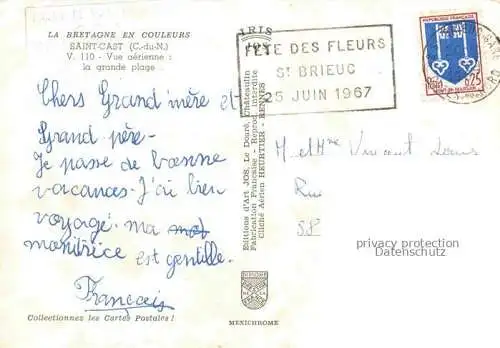 LA BRETAGNE EN COULEURS
SAINT-CAST (C.-du-N.)
V. 110 - Vue aérienne :
la grande plage
Chers Grand'mère et
Grand père -
Je passe de bonne
vacances - J'ai bien
voyagé. ma
monitrice est gentille.
Français
Collectionnez les Cartes Postales !
Editions d'Art JOS, Le Doaré, Châteaulin
Fabrication Française - Reprod. interdite
Cliché Aérien HEURTIER - RENNES
MEXICHROME
FETE DES FLEURS
ST BRIEUC
25 JUIN 1967
REPUBLIQUE FRANÇAISE
0,25
MONT-DE-MARSAN
M et Mme Vincent Louis
Rue
privacy protection
Datenschutz